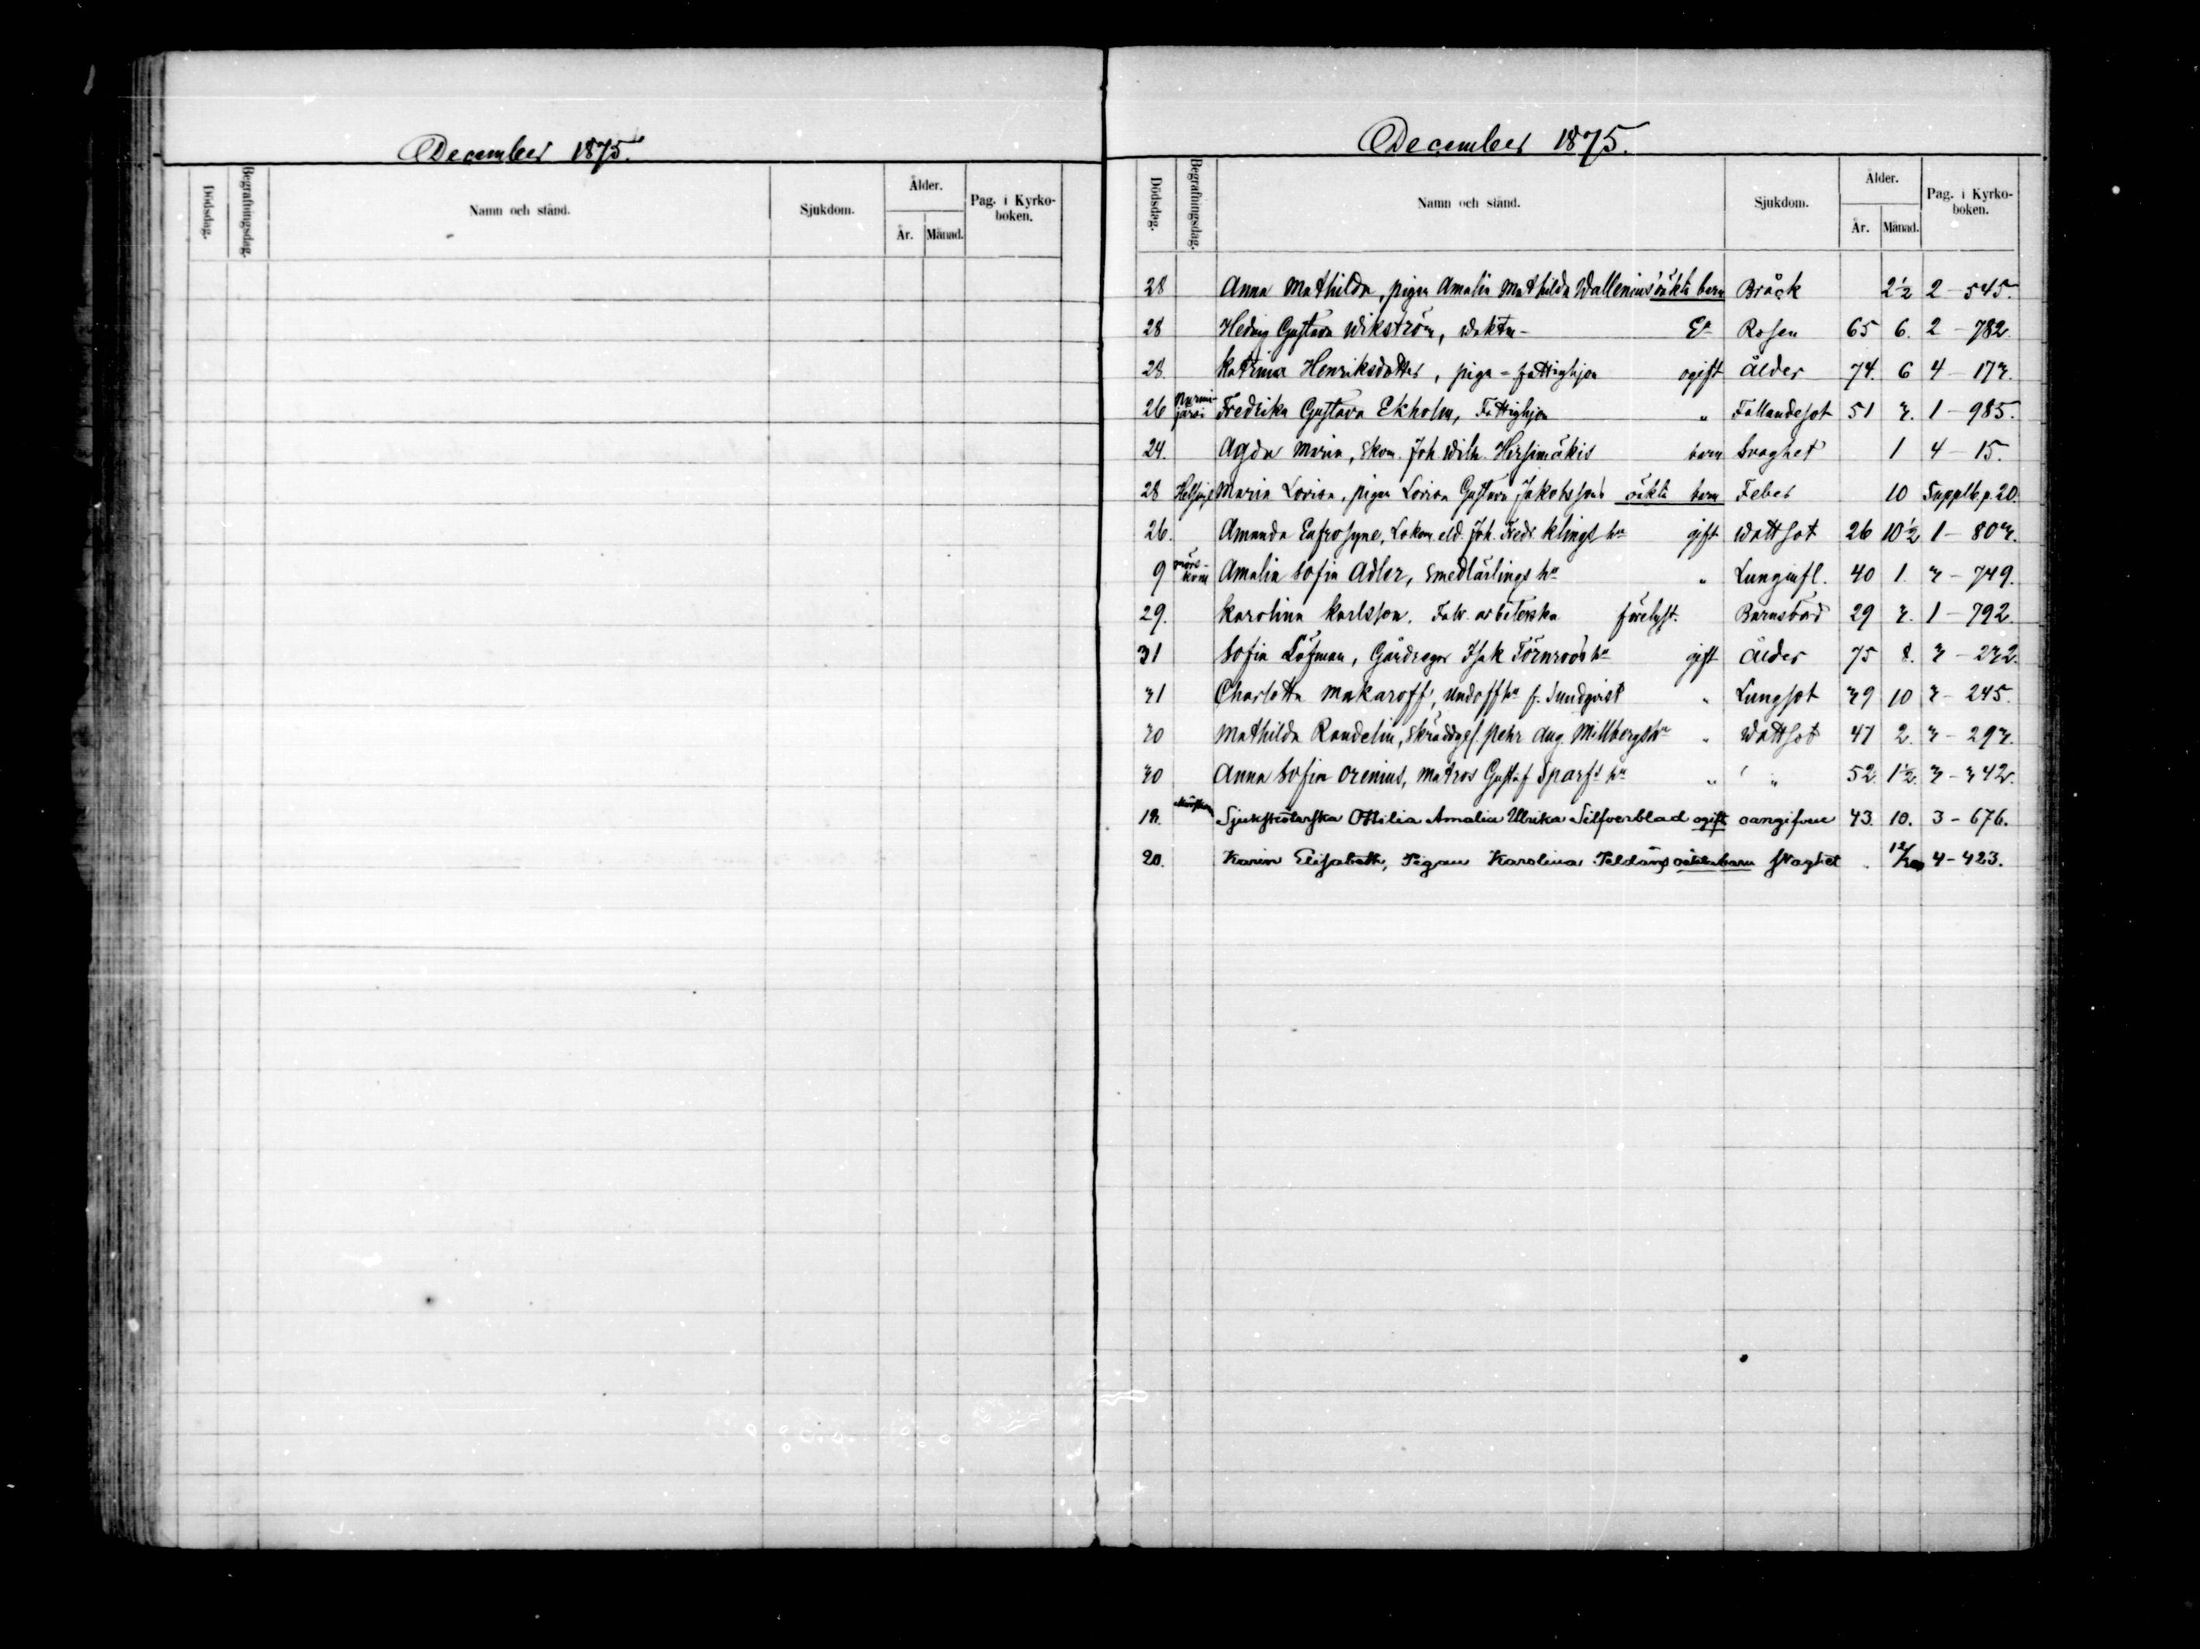 December 1875.
Dödsdag. Begrafningsdag. Namn och stånd. Sjukdom. Ålder. År. Månad. Pag. i Kyrko-boken.
December 1875.
Dödsdag. Begrafningsdag. Namn och stånd. Sjukdom. Ålder. År. Månad. Pag. i Kyrko-boken.
28 Anna Mathilda, pigan Amalia Mathilda Wallenius' oäkta barn Bråck 2½ 2 - 545.
28 Hedvig Gustava Wikström, waktm- Ea Rosen 65 6. 2 - 782.
28. Katrina Henriksdotter, piga - fattighjon ogift Ålder 74. 6 4 - 173.
26 Nurmijärvi Fredrika Gustava Ekholm, Fattighjon " Fallandesot 51 3. 1 - 985.
24. Agda Maria, skom. Joh. Wilh. Hirsimäkis barn Svaghet 1 4 - 15.
28 Helsinge Maria Lovisa, pigan Lovisa Gustava Jakobssons oäkta barn Feber 10 Supplb. p. 20.
26. Amanda Eufrosyne, Lokom. eld. Joh. Fredr. Klings hu gift Wattsot 26 10½ 1 - 803.
9 Mörskom Amalia Sofia Adler, Smedlärlings hu " Lunginfl. 40 1. 3 - 749.
29. Karolina Karlsson. Fabr. arbeterska förelyst. Barnsbörd 29 3. 1 - 792.
31 Sofia Löfman, Gårdsegar Isak Törnroos hu gift Ålder 75 8. 3 - 232.
31 Charlotta Makaroff, Undoff hu f. Sundqvist " Lungsot 39 10 3 - 245.
30 Mathilda Randelin, Skräddges. Pehr Aug. Millbergs hu " Wattsot 47 2. 3 - 293.
30 Anna Sofia Orenius, matros Gustaf Sparfs hu " " 52. 1½. 3 - 342.
13. Mörskom Sjuksköterska Ottilia Amalia Ulrika Silfverblad ogift oangifven 43. 10. 3 - 676.
20. Karin Elisabeth, Pigan Karolina oäkta barn svaghet 4 - 423.